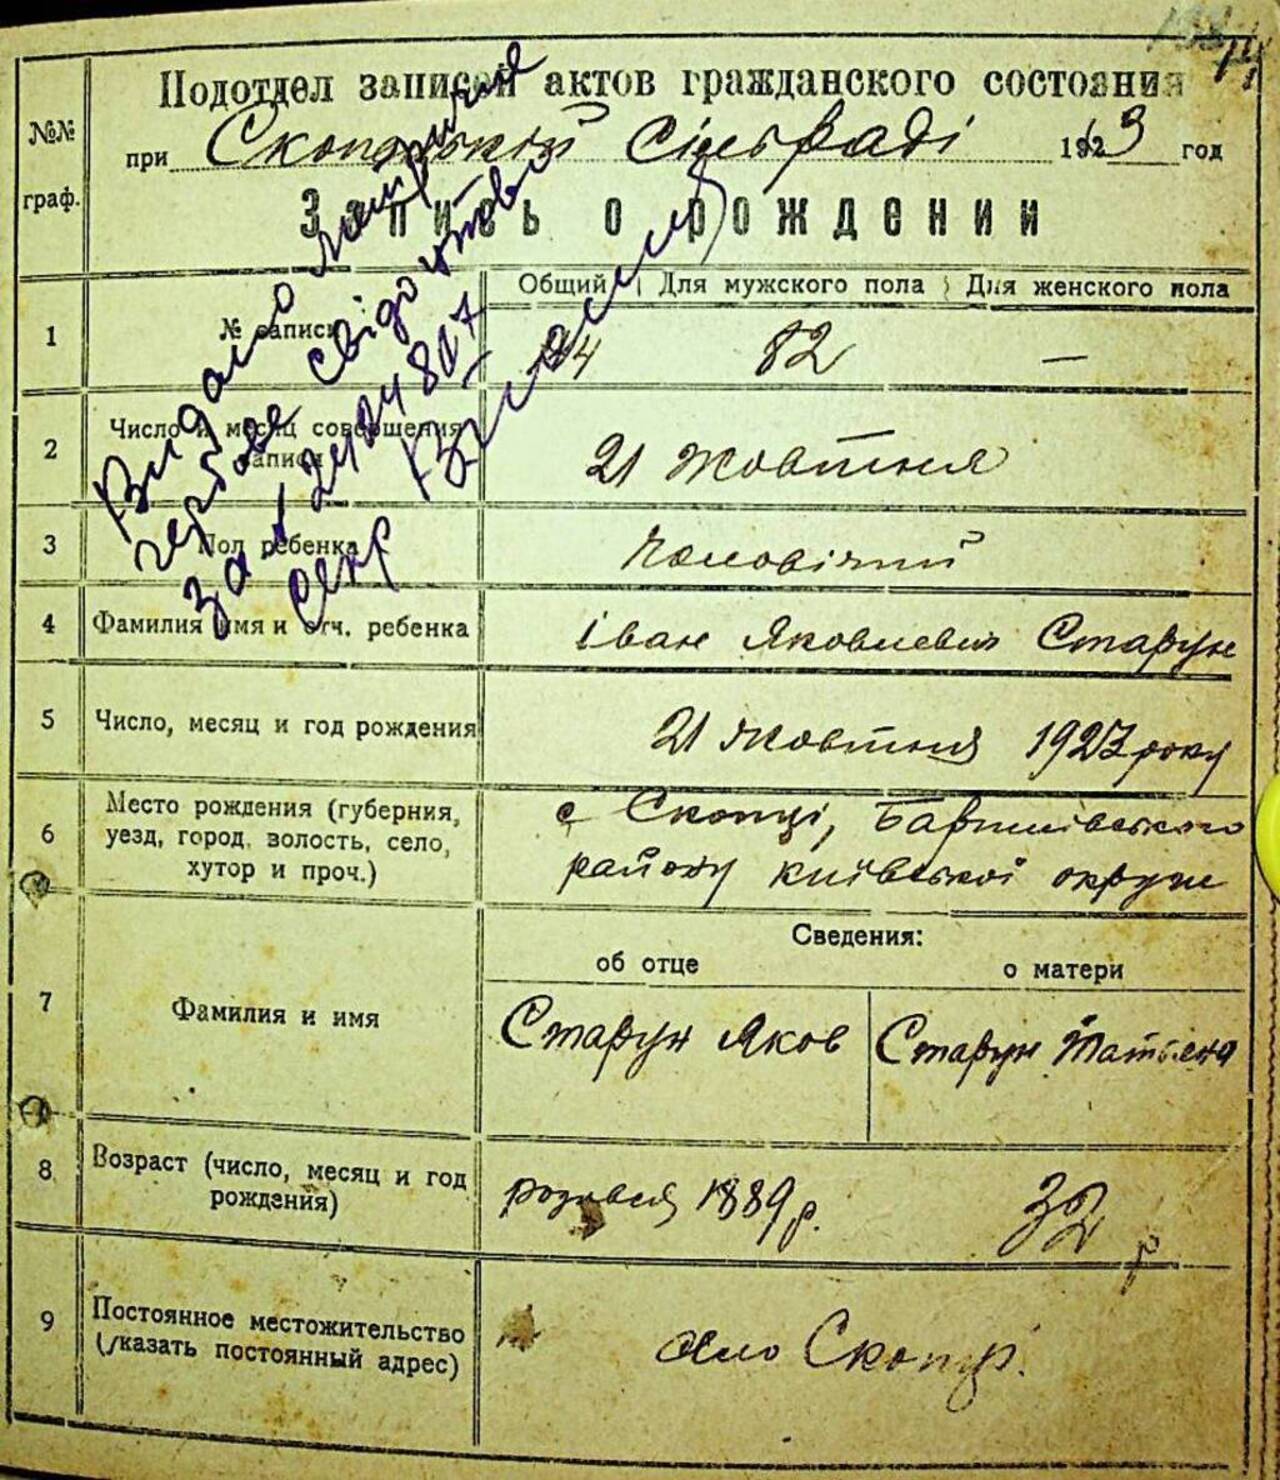 Подотдел записей актов гражданского состояния
№№ граф.
при Скопецькій Сільраді 1923 год
Запись о рождении
Общий Для мужского пола Для женского пола
1 № записи 82 —
2 Число и месяц совершения записи 21 жовтня
3 Пол ребенка Чоловічий
4 Фамилия имя и отч. ребенка Іван Яковлевич Старун
5 Число, месяц и год рождения 21 жовтня 1923 року
6 Место рождения (губерния, с Скопці, Баришівського
уезд, город, волость, село, району київської округи
хутор и проч.)
Сведения:
об отце о матери
7 Фамилия и имя Старун Яков Старун Татьяна
8 Возраст (число, месяц и год родився 1889 р. 32 р
рождения)
9 Постоянное местожительство село Скопці.
(указать постоянный адрес)
Видано
гербове свідоцтво
за №
секр